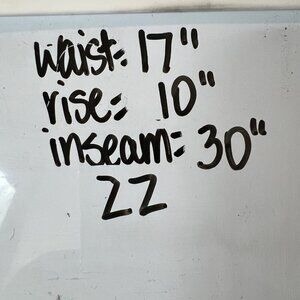 waist: 17"
rise: 10"
inseam: 30"
ZZ